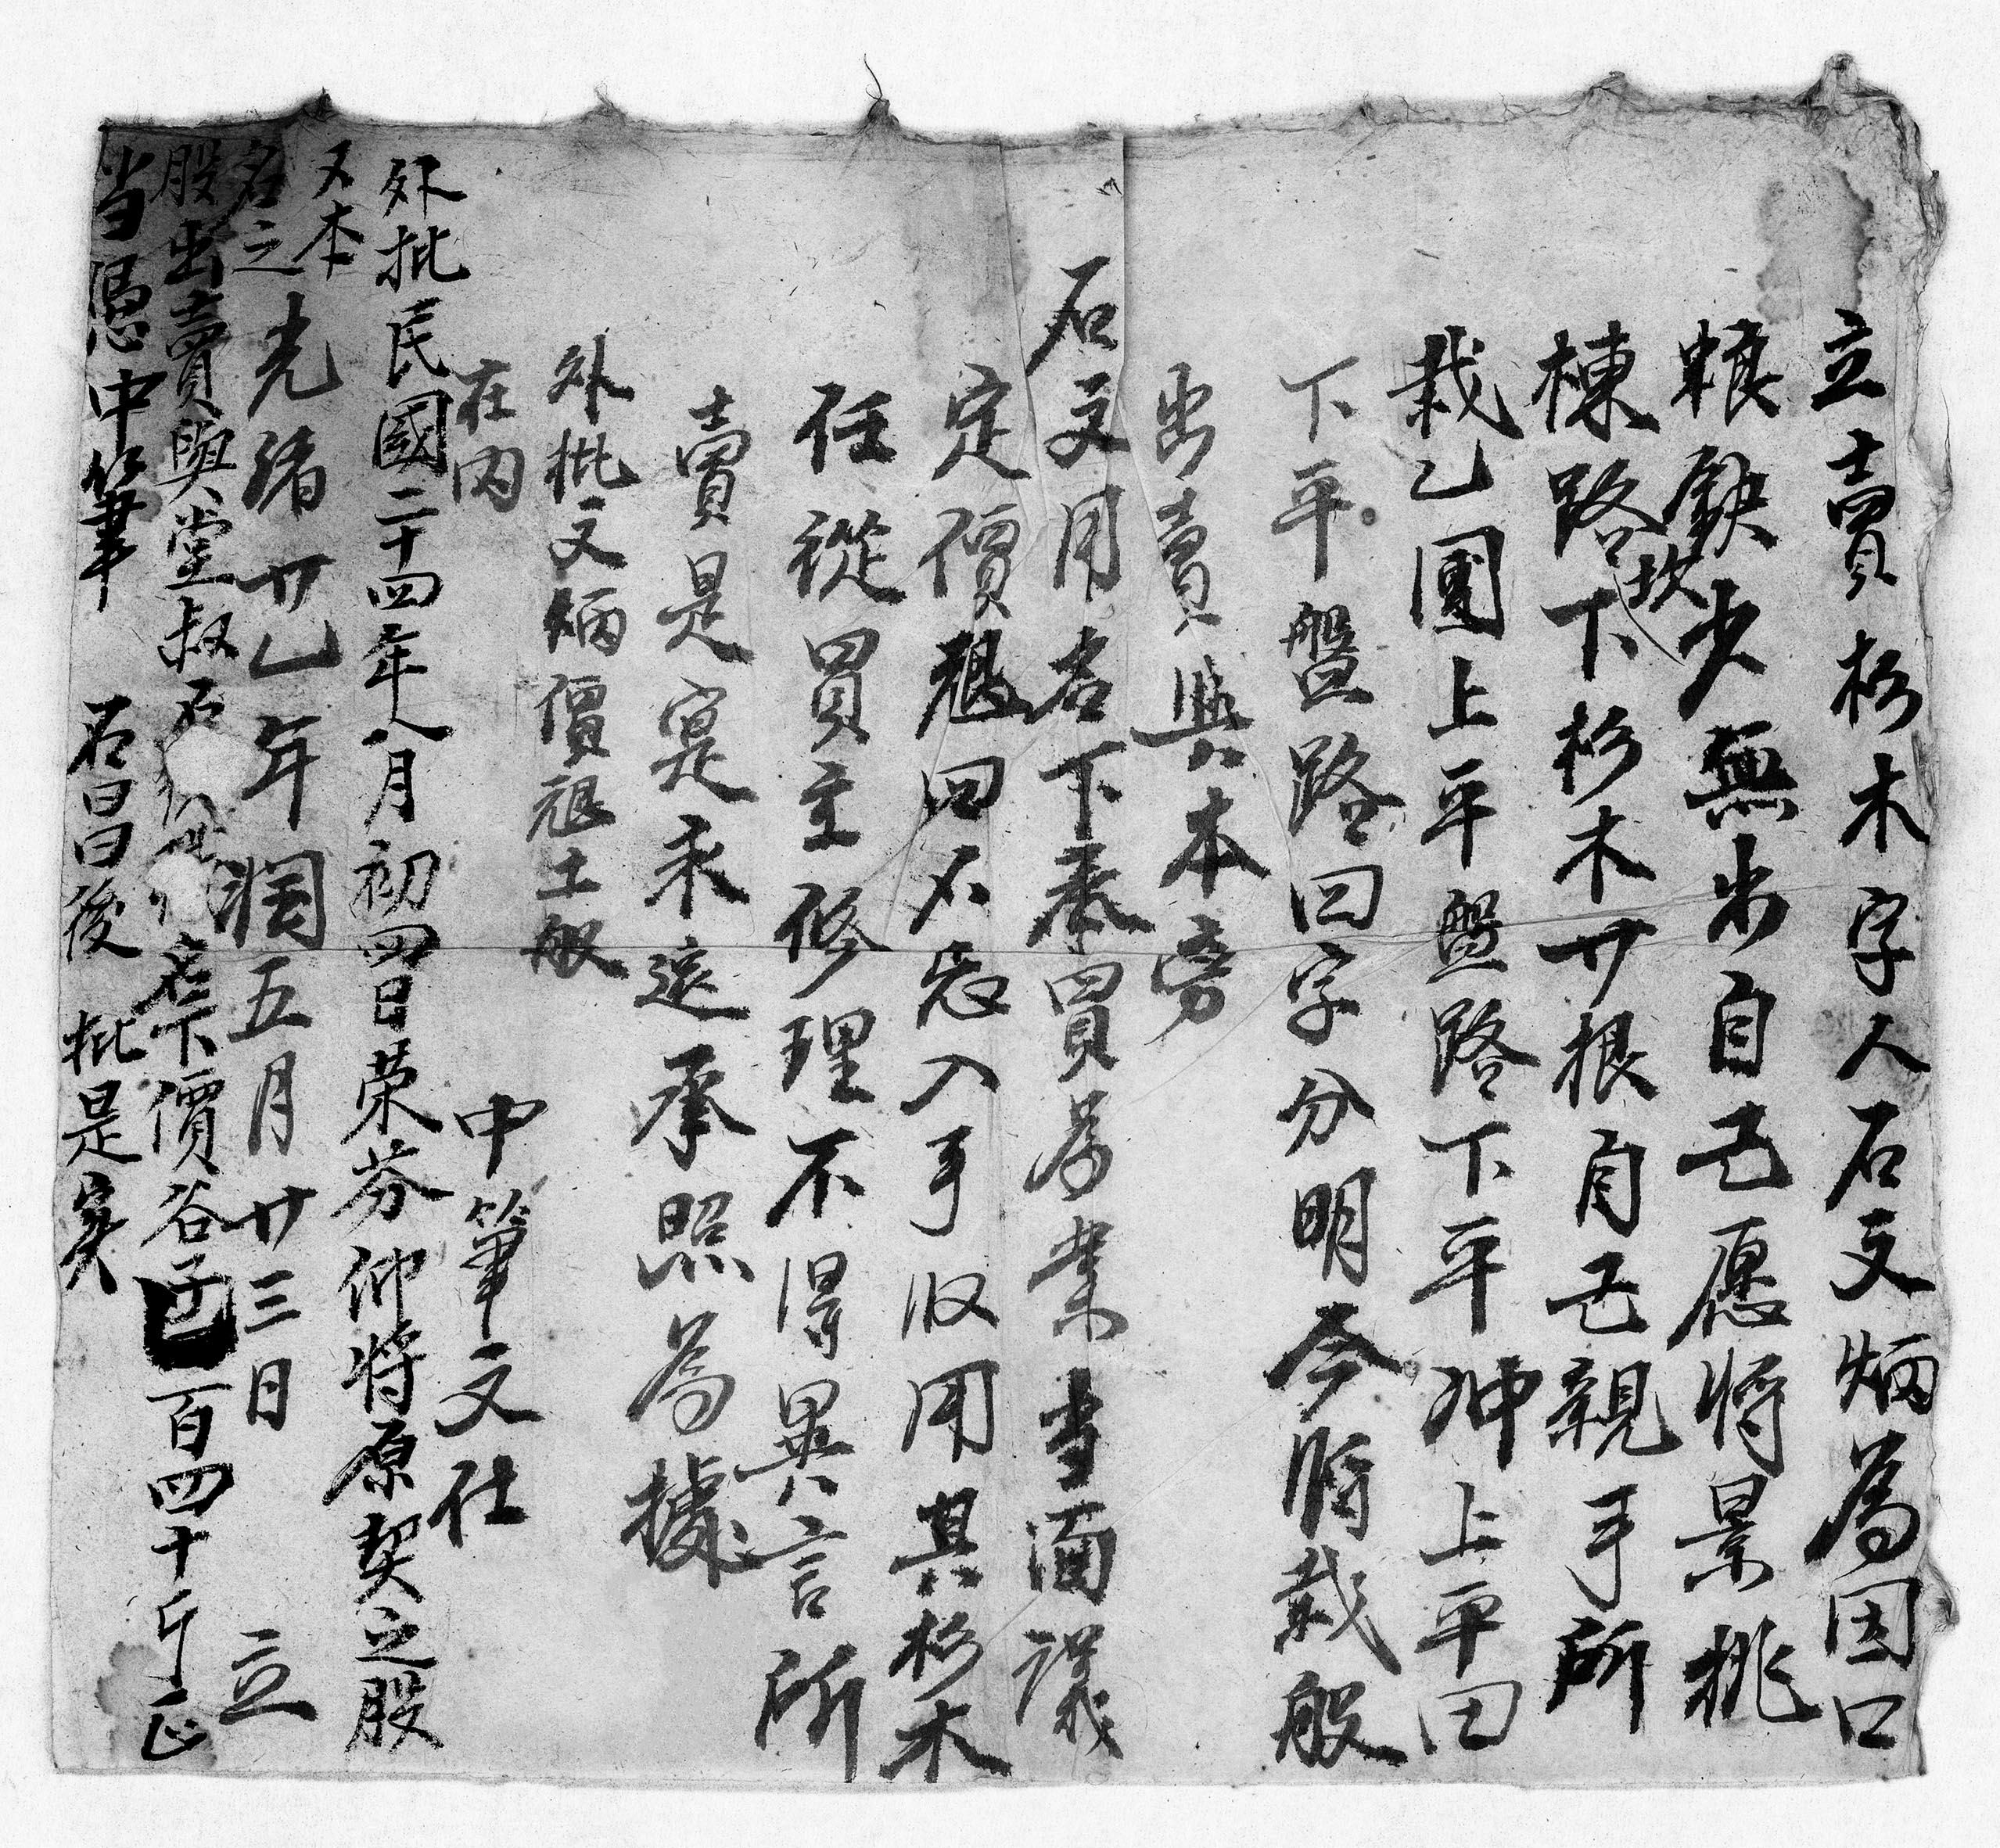 立賣杉木字人石文炳為因口
粮缺少無出自己愿將景挑
棟路坎下杉木廿根自己親手所
栽乙團上平盤路下平冲上平田
下平盤路四字分明今將栽股
出賣與本旁
石文用名下承買為業当面議
定價 四不忘入手收用其杉木
任從買主修理不得異言所
賣是寔承遠承照為據
外批文炳價 土股
在内
中筆文仕
外批民國二十四年八月初四日荣芬仰将原契之股
又本
名之
光绪廿乙年潤五月廿三日 立
股出賣與堂叔石 名下價谷子 百四十斤正
当憑中筆 石昌後 批是实